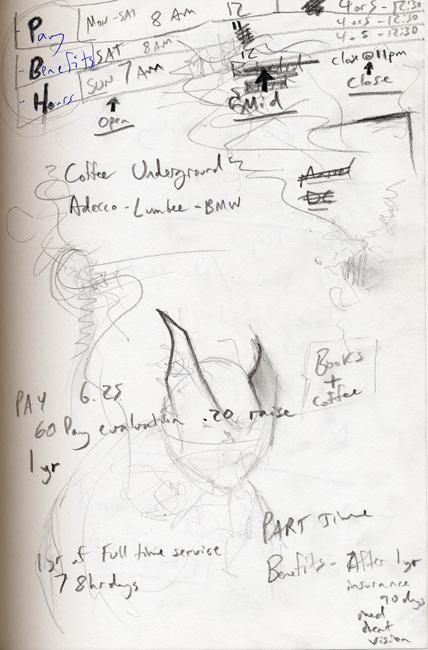 Pay
Mon-SAT 8 AM 12 4 or 5 - 12:30
4 or 5 - 12:30
Benefits SAT 8 AM 4 or 5 - 12:30
Hours SUN. 7 AM 12 close @ 11pm
Open Mid Close
Coffee Underground
Adecco - Lumbee - BMW
Books
+
coffee
PAY 6.25
60 Day evaluation .20 raise
1 yr
PART Time
1 yr of Full time service
7 8hr days
Benefits - After 1 yr
insurance
90 days
med
dent
vision